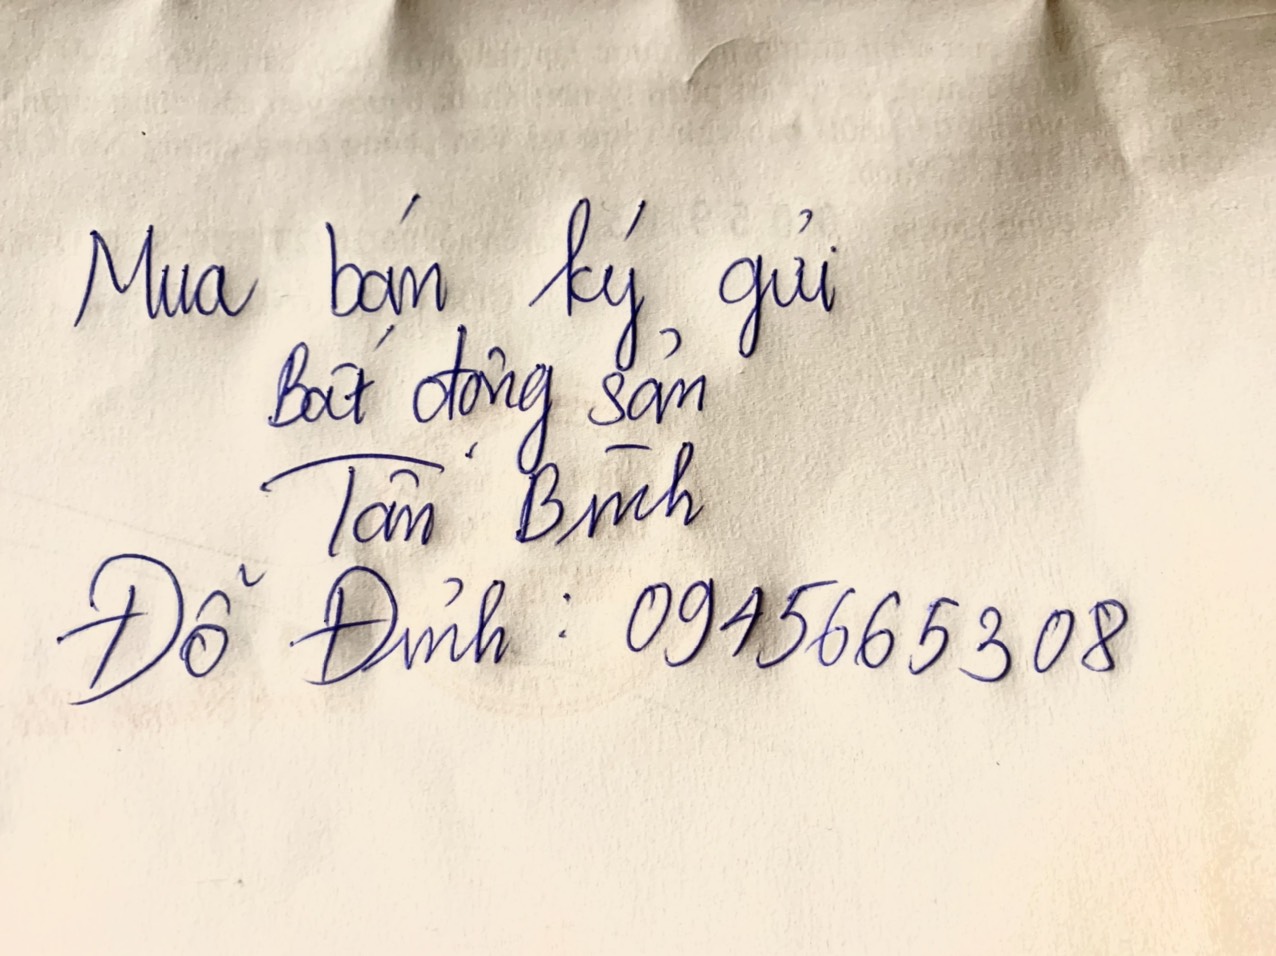 Mua bán ký gửi
Bất động sản
Tân Bình
Đỗ Đỉnh : 0945665308